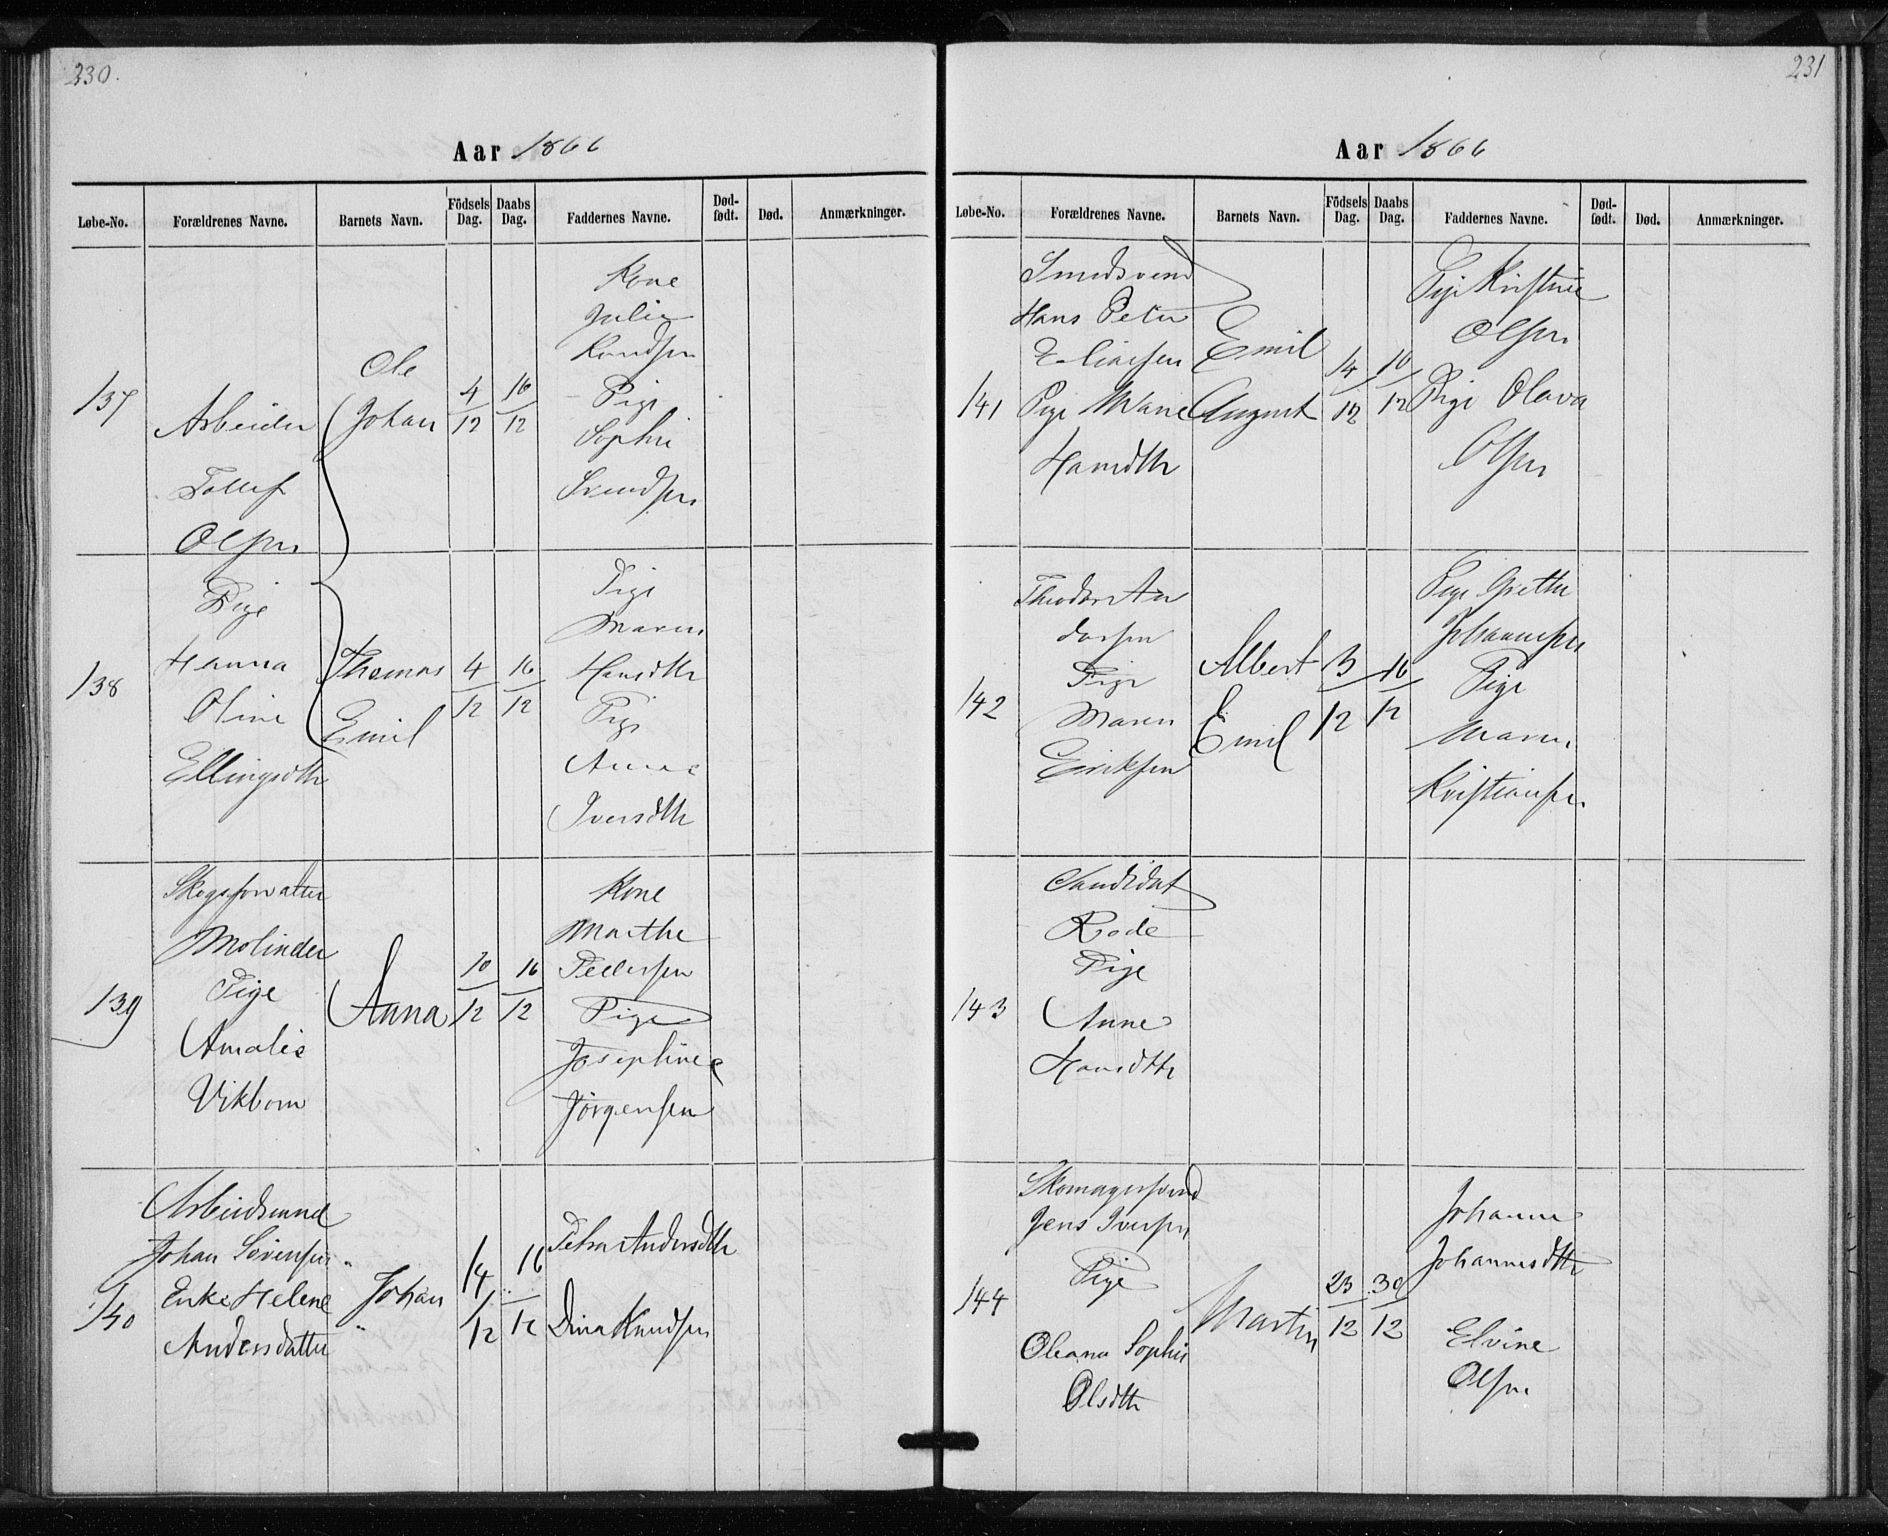 230.
Aar 1866
Løbe-No. Forældrenes Navne. Barnets Navn. Födsels Dag. Daabs Dag. Faddernes Navne. Død-født. Død. Anmærkninger.
137
Arbeider
Tollef
Olsen
Pige
Hanna
Oline
Ellingsdtr
Ole
Johan
4/12
16/12
Kone
Julie
Knudsen
Pige
Sophie
Svendsen
138
Thomas
Emil
4/12
16/12
Pige
Maren
Hansdtr
Pige
Anne
Iversdtr
139
Skogsforvalter
Molinder
Pige
Amalie
Vikbom
Anna
10/12
16/12
Kone
Marthe
Pedersen
Pige
Josephine
Jörgensen
140
Arbeidsmand
Johan Sörensen
Enke Helene
Andersdatter
Johan
14/12
16/12
Petra Andersdtr
Dina Knudsen
231
Aar 1866
Løbe-No. Forældrenes Navne. Barnets Navn. Födsels Dag. Daabs Dag. Faddernes Navne. Død-født. Død. Anmærkninger.
141
Smedsvend
Hans Peter
Eliassen
Pige Marie
Hansdtr
Emil
August
14/12
10/12
Pige Kristine
Olsen
Pige Olava
Olsen
142
Theodor An
dersen
Pige
Maren
Eriksen
Albert
Emil
3/12
16/12
Pige Grethe
Johannesen
Pige
Maren
Kristiansen
143
Candidat
Rode
Pige
Anne
Hansdtr
144
Skomagersvend
Jens Iversen
Pige
Oleana Sophie
Olsdtr
Martin
23/12
30/12
Johanne
Johannesdtr
Elvine
Olsen